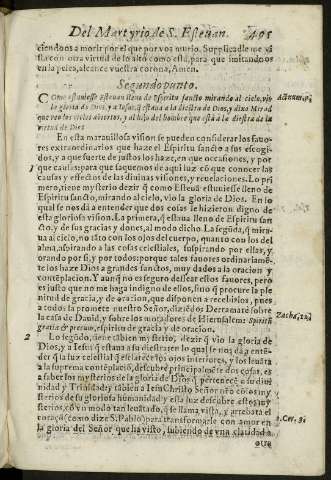 Del Martyrio de S. Esteuan. 405
ciendoos a morir por el que por vos murio. Supplicadle me vi
sta con otra virtud de lo alto como esta, para que imitandoos
en la pelea, alcance vuestra corona, Amen.
Segundo punto.
COmo estuuiesse esteuan lleno de Espiritu sancto mirando al cielo, vio
la gloria de Dios, y a Iesus q̃ estaua a la diestra de Dios, y dixo Mirad
que veo los cielos abiertos, y al hijo del hombre que está a la diestra de la
virtud de Dios
En esta marauillosa vision se pueden considerar los fauo
res extraordinarios que haze el Espiritu sancto a sus escogi
dos, y a que suerte de justos los haze, en que occasiones, y por
que causas: para que saquemos de aqui luz cõ que conocer las
causas y effectos de las diuinas visiones, y reuelaciones. Lo pri
mero, tiene mysterio dezir q̃ como Esteuã estuuiesse lleno de
Espiritu sancto, mirando al cielo, vio la gloria de Dios. En lo
qual se nos dá a entender que dos cosas le hizieron digno de
esta gloriosa vision. La primera, q̃ estaua lleno de Espiritu san
cto, y de sus gracias y dones, al modo dicho. La segũda, q̃ mira
ua al cielo, no tãto con los ojos del cuerpo, quanto con los del
alma, aspirando a las cosas celestiales, suspirando por ellas, y
orando por si, y por todos: porque tales fauores ordinariamẽ-
te los haze Dios a grandes sanctos, muy dados a la oracion y
contẽplacion. Y aun q̃ no es seguro dessear estos fauores, pero
es justo que no me haga indigno de ellos, sino q̃ procure la ple
nitud de gracia, y de oracion, que disponen a recebirlos, pues
a todos la promete nuestro Señor, diziẽdo: Derramaré sobre
la casa de Dauid, y sobre los moradores de Hierusalem: Spiritũ
gratiæ & precum, espiritu de gracia y de oracion.
2 Lo segũdo, tiene tãbien mysterio, dezir q̃ vio la gloria de
Dios, y a Iesus q̃ estaua a su diestra: en lo qual se nos dá a entẽ-
der q̃ la luz celestial q̃ esclarece los ojos interiores, y los leuãta
a la suprema contẽplaciõ, descubre principalmẽte dos cosas, es
a saber los mysterios de la gloria de Dios q̃ pertenecẽ a su diui
nidad y Trinidad, y tãbien a Iesu Christo Señor nõ cõ los my
sterios de su gloriosa humanidad: y esta luz descubre estos my
steriosos
coraçõ (como dize S. Pablo) para transformarle con amor en
la gloria del Señor que ha visto, subiendo de vna claridad a
otra
Zacha. 12.